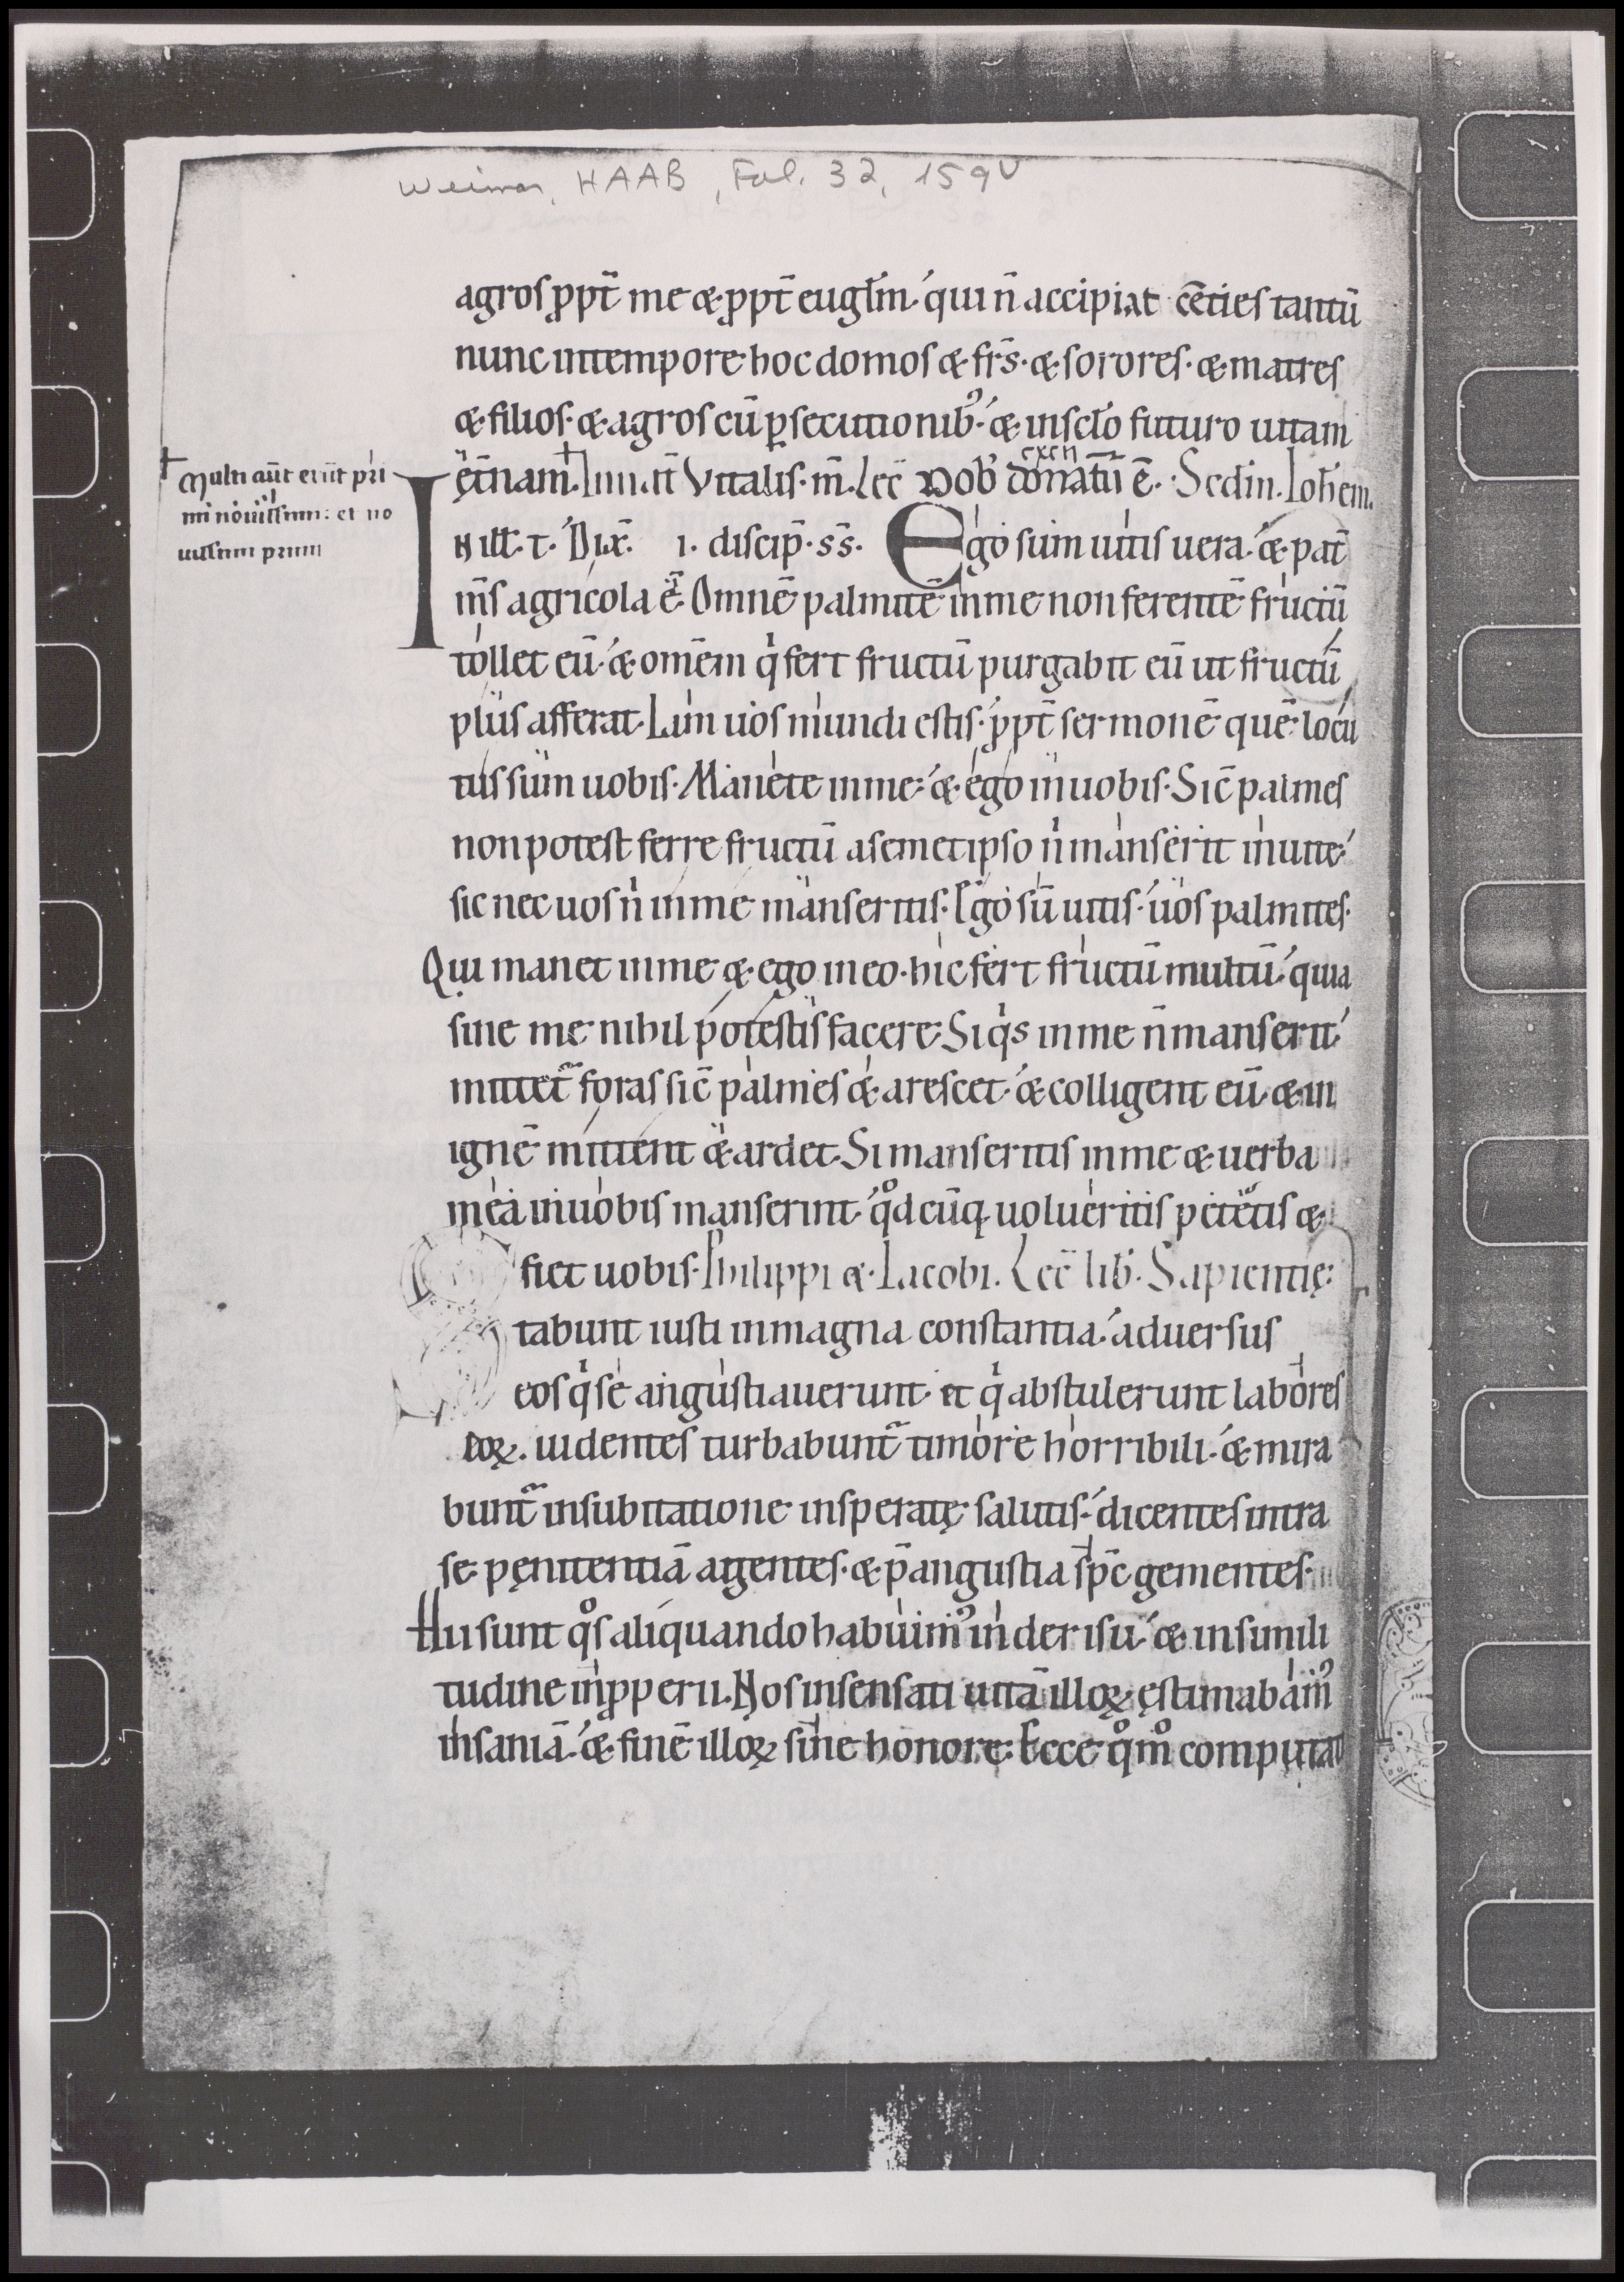 Weimar, HAAB, Fol. 32, 159v
agros ꝓpt̄ me & ꝓpt̄ euglm̄ qui n̄ accipiat cēties tantū
nunc intempore hoc domos & fr̄s· & sorores· & matres
& filios· & agros cū ꝑsecutionib; & inscl̄o futuro uitam
ęt̄nam. Vitalis· m̄. Lec̄ Nob donatū ē. Scd̄m. Ioh̄em.
Multi aūt erūt pri
mi nouissimi: et no
uissimi primi
IN ill. t. Dix̄. i. discip̄· ss̄. Ego sum uitis uera· & pat̄
m̄s agricola ē. Omnē palmitē inme non ferentē fructū
tollet eū· & om̄em q fert fructū purgabit eū ut fructū
plus afferat. Iam uos mundi estis· ꝓpt̄ sermonē quē locu
tus sum uobis. Manete inme: & ego inuobis. Sic̄ palmes
non potest ferre fructū asemetipso n manserit inuite
sic nec uos n inme manseritis. Ego sū uitis· uos palmites.
Qui manet inme & ego ineo· hic fert fructū multū quia
sine me nihil potestis facere. Si qs inme n̄ manserit
mittet̄ foras sic̄ palmes & arescet· & colligent eū & in
ignē mittent & ardet. Si manseritis inme & uerba
mea inuobis manserint qd cūq uolueritis petetis &
fiet uobis. Philippi & Iacobi. Lec̄ lib. Sapientię.
Stabunt iusti inmagna constantia· aduersus
eos q se angustiauerunt et q abstulerunt labores
eoꝝ. uidentes turbabunt̄ timore horribili· & mira
bunt̄ insubitatione insperatę salutis· dicentes intra
se penitentiā agentes· & p̄ angustia sp̄c gementes.
Hii sunt qs aliquando habuim inderisu & insimili
tudine inꝓperii. Nos insensati uitā illoꝝ ęstimabam
insaniā· & finē illoꝝ sine honore. Ecce qm̊ computat